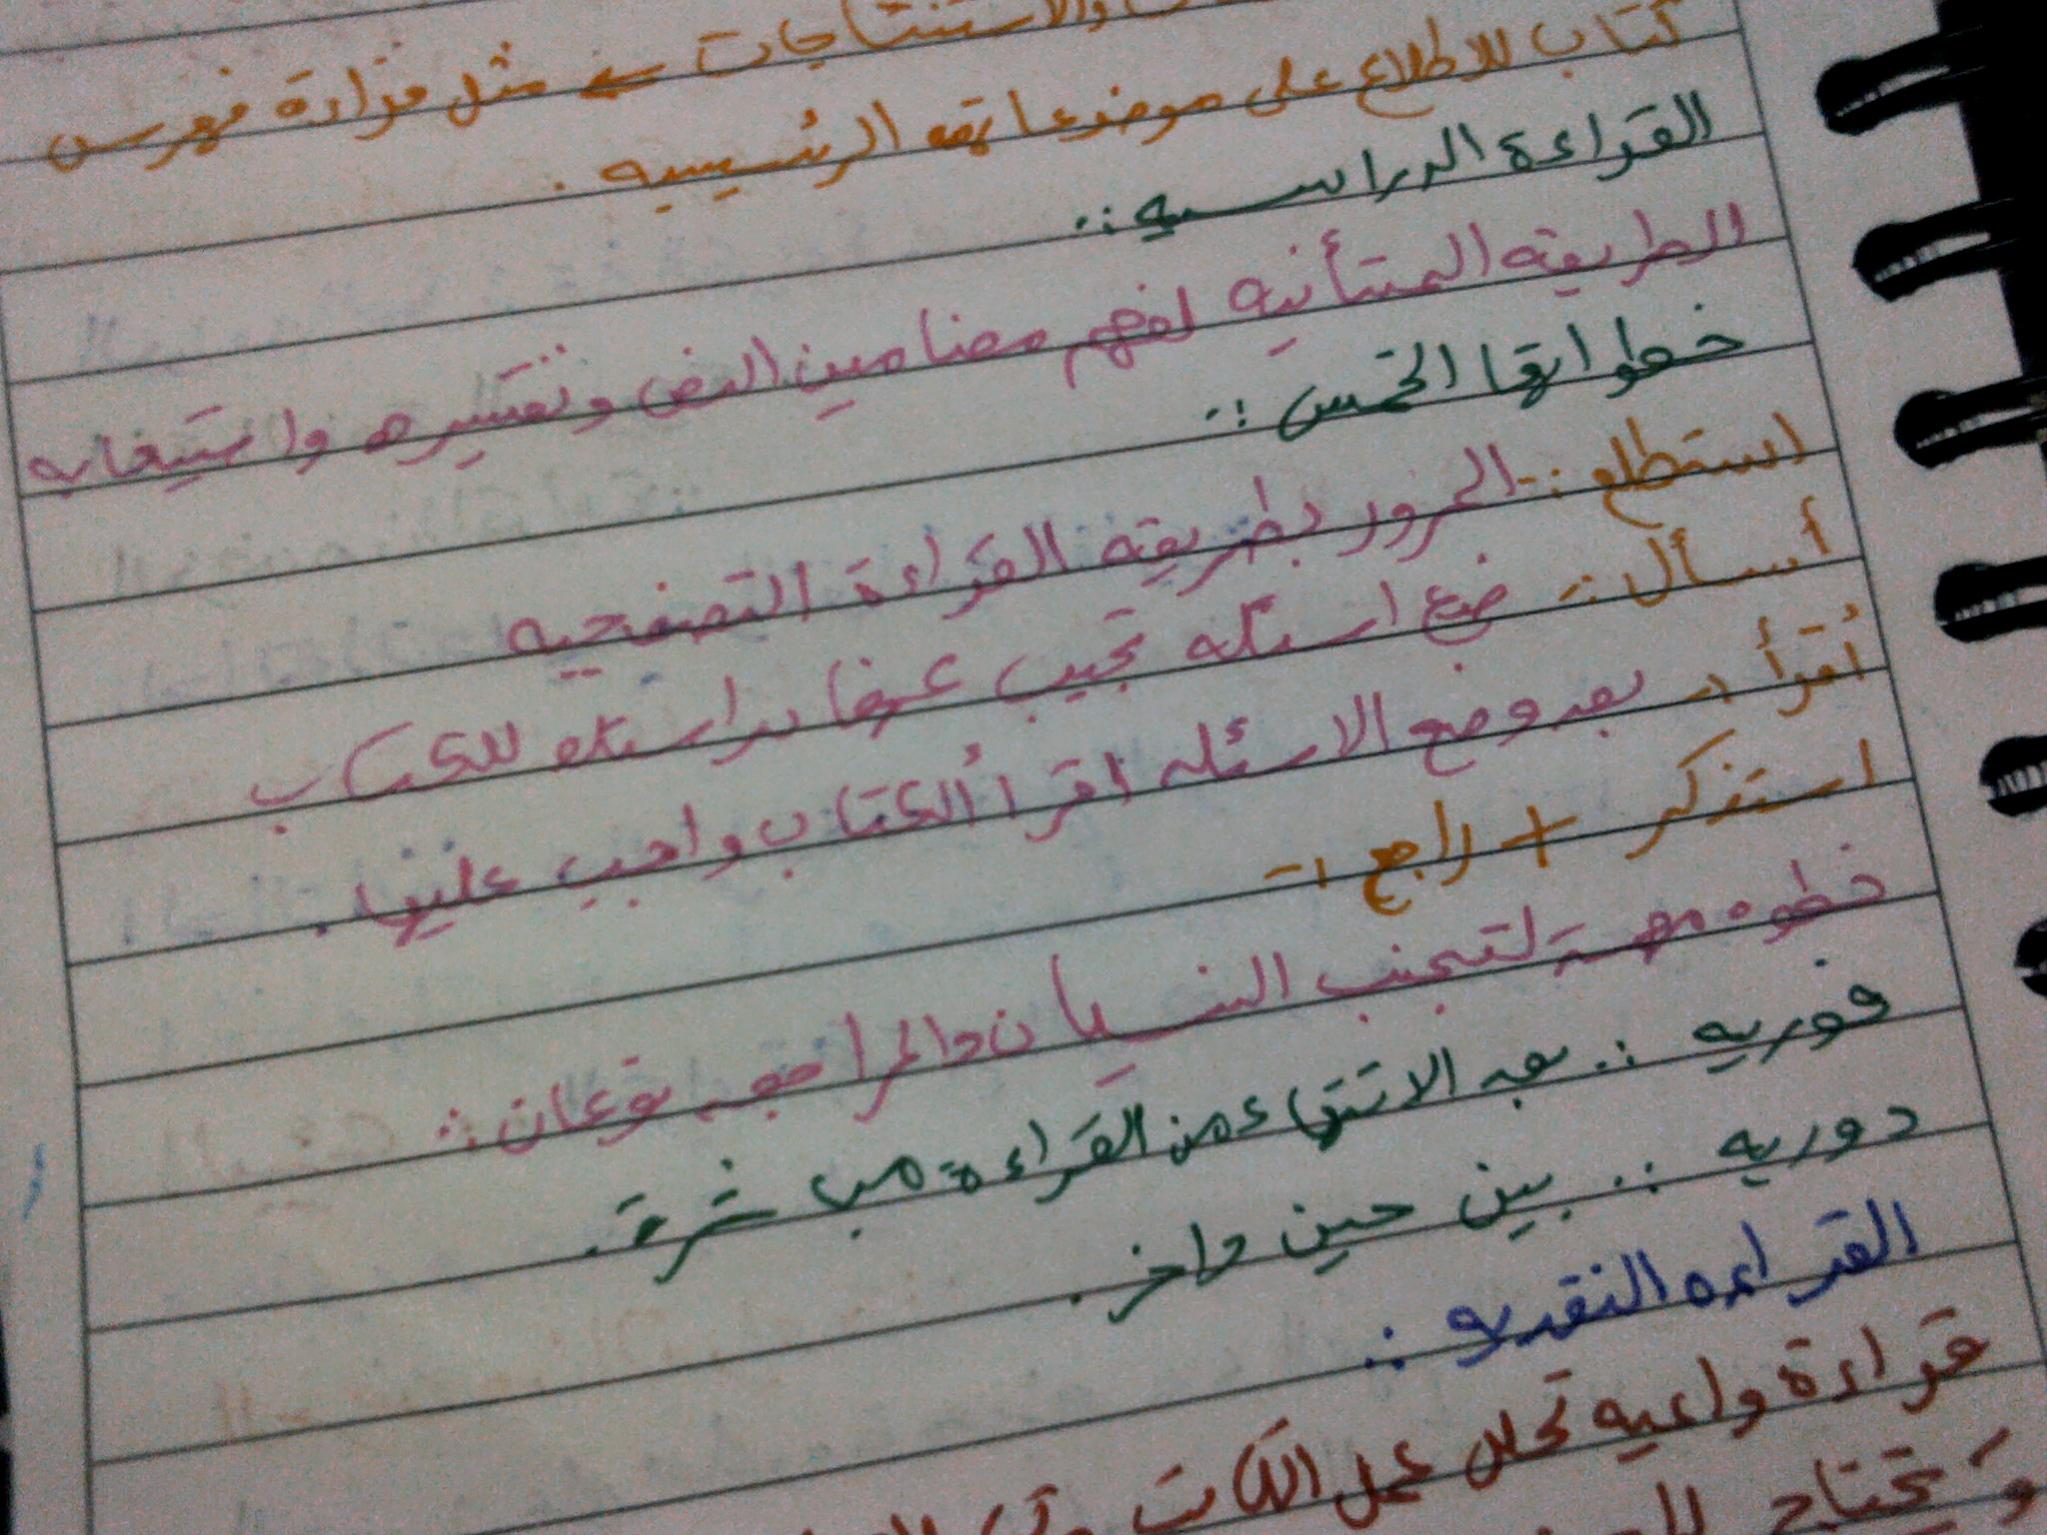 والاستنتاجات مثل قراءة فهرس
كتاب للاطلاع على موضوعاته الرئيسيه .
القراءة الدراسيه :.
الطريقه المتأنيه لفهم مضامين النص وتفسيره واستيعابه
خطواتها الخمس :.
استطلع :- المرور بطريقه القراءة التصفحيه
أسأل :- ضع اسئله تجيب عنها دراستك للكتاب
أقرأ :- بعد وضع الاسئله اقرأ الكتاب واجب عليها .
استذكر + راجع :-
خطوه مهمة لتجنب النسيان والمراجعه نوعان :
فوريه :. بعد الانتهاء من القراءة مباشرة .
دوريه :. بين حين واخر .
القراءه النقديه :.
قراءة واعيه تحلل عمل الكاتب
وتحتاج